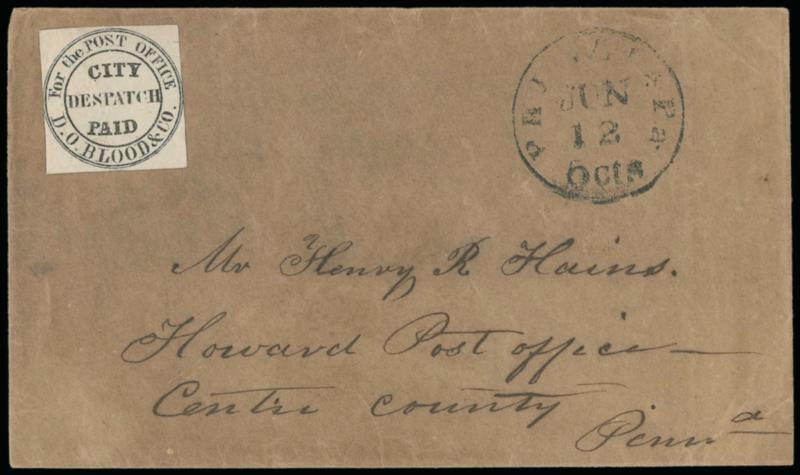 For the POST OFFICE
CITY
DESPATCH
PAID
D.O. BLOOD & CO.
PHILADa. Pa.
JUN
12
5cts
Mr Henry R Hains.
Howard Post office —
Centre county
Pennª